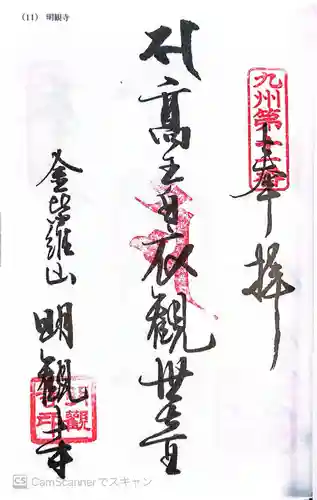 (11) 明観寺
九州第
奉拝
高王白衣觀世音
金比羅山 明觀寺
CS CamScannerでスキャン